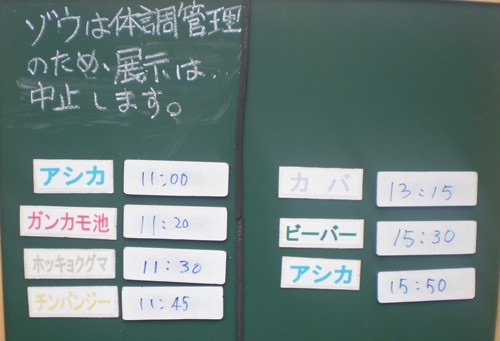 ゾウは体調管理
のため、展示は
中止します。
アシカ 11:00
ガンカモ池 11:20
ホッキョクグマ 11:30
チンパンジー 11:45
カバ 13:15
ビーバー 15:30
アシカ 15:50